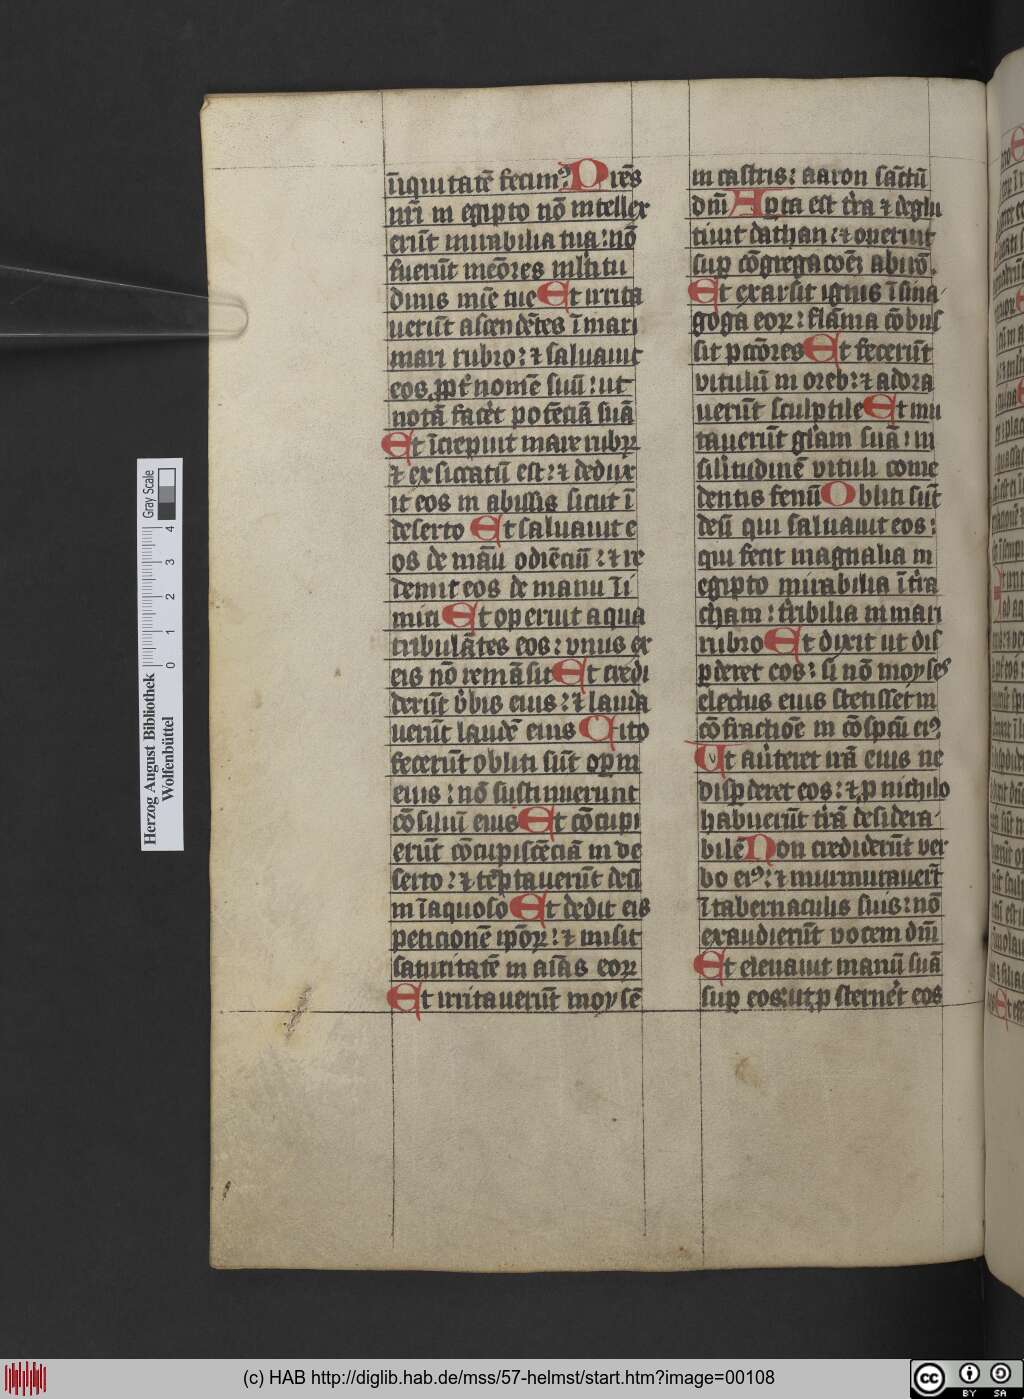 iniquitatē fecim⁹. Pr̄es
nr̄i in egipto nō intellex
erūt mirabilia tua: nō
fuerūt meōres ml̄titu
dinis mīe tue Et irrita
uerūt ascendētes ī mari
mari rubro: ⁊ saluauit
eos ꝓpt̄ nomē suū: ut
notā facet potēciā suā
Et īcrepuit mare rubꝝ
⁊ exsiccatū est: ⁊ dedux
it eos in abissis sicut ī
deserto Et saluauit e
os de māu odiēciū: ⁊ re
demit eos de manu ī i
mici Et operuit aqua
tribulātes eos: vnus ex
eis nō remāsit Et credi
derūt v̄bis eius: ⁊ lauda
uerūt laudē eius Cito
fecerūt obliti sūt oꝑm
eius: nō sustinuerunt
cōsiliū eius Et cōcupi
erūt cōcupiscēciā in de
serto: ⁊ tēptauerūt deū
in īaquoso Et dedit eis
peticionē ipōꝝ: ⁊ misit
saturitatē in aīas eoꝝ
Et irritauerūt moysē
in castris: aaron sāctū
dn̄i Apta est tr̄a ⁊ deglu
tiuit dathan: ⁊ operuit
suꝑ cōgregacoēꝫ abirō.
Et exarsit ignis ī sina
goga eoꝝ: flāma cōbus
sit pctōres Et fecerūt
vitulū in oreb: ⁊ adora
uerūt sculptile Et mu
tauerūt glam suā: in
silitudinē vituli come
dentis fenū Obliti sūt
deū qui saluauit eos:
qui fecit magnalia in
egipto mirabilia ī tr̄a
cham: tr̄ibilia in mari
rubro Et dixit ut dis
ꝑderet eos: si nō moyses
electus eius stetisset in
cōfractiōe in cōspcū ei⁹
Ut aūteret irā eius ne
disꝑderet eos: ⁊ ꝓ nichilo
habuerūt tr̄ā desidera
bilē Non crediderūt ver
bo ei⁹: ⁊ murmurauer̄t
ī tabernaculis suis: nō
exaudierūt vocem dn̄i
Et eleuauit manū suā
suꝑ eos: ut ꝓsternet eos
Herzog August Bibliothek
Wolfenbüttel
Gray Scale
0 1 2 3 4
(c) HAB http://diglib.hab.de/mss/57-helmst/start.htm?image=00108
cc BY SA